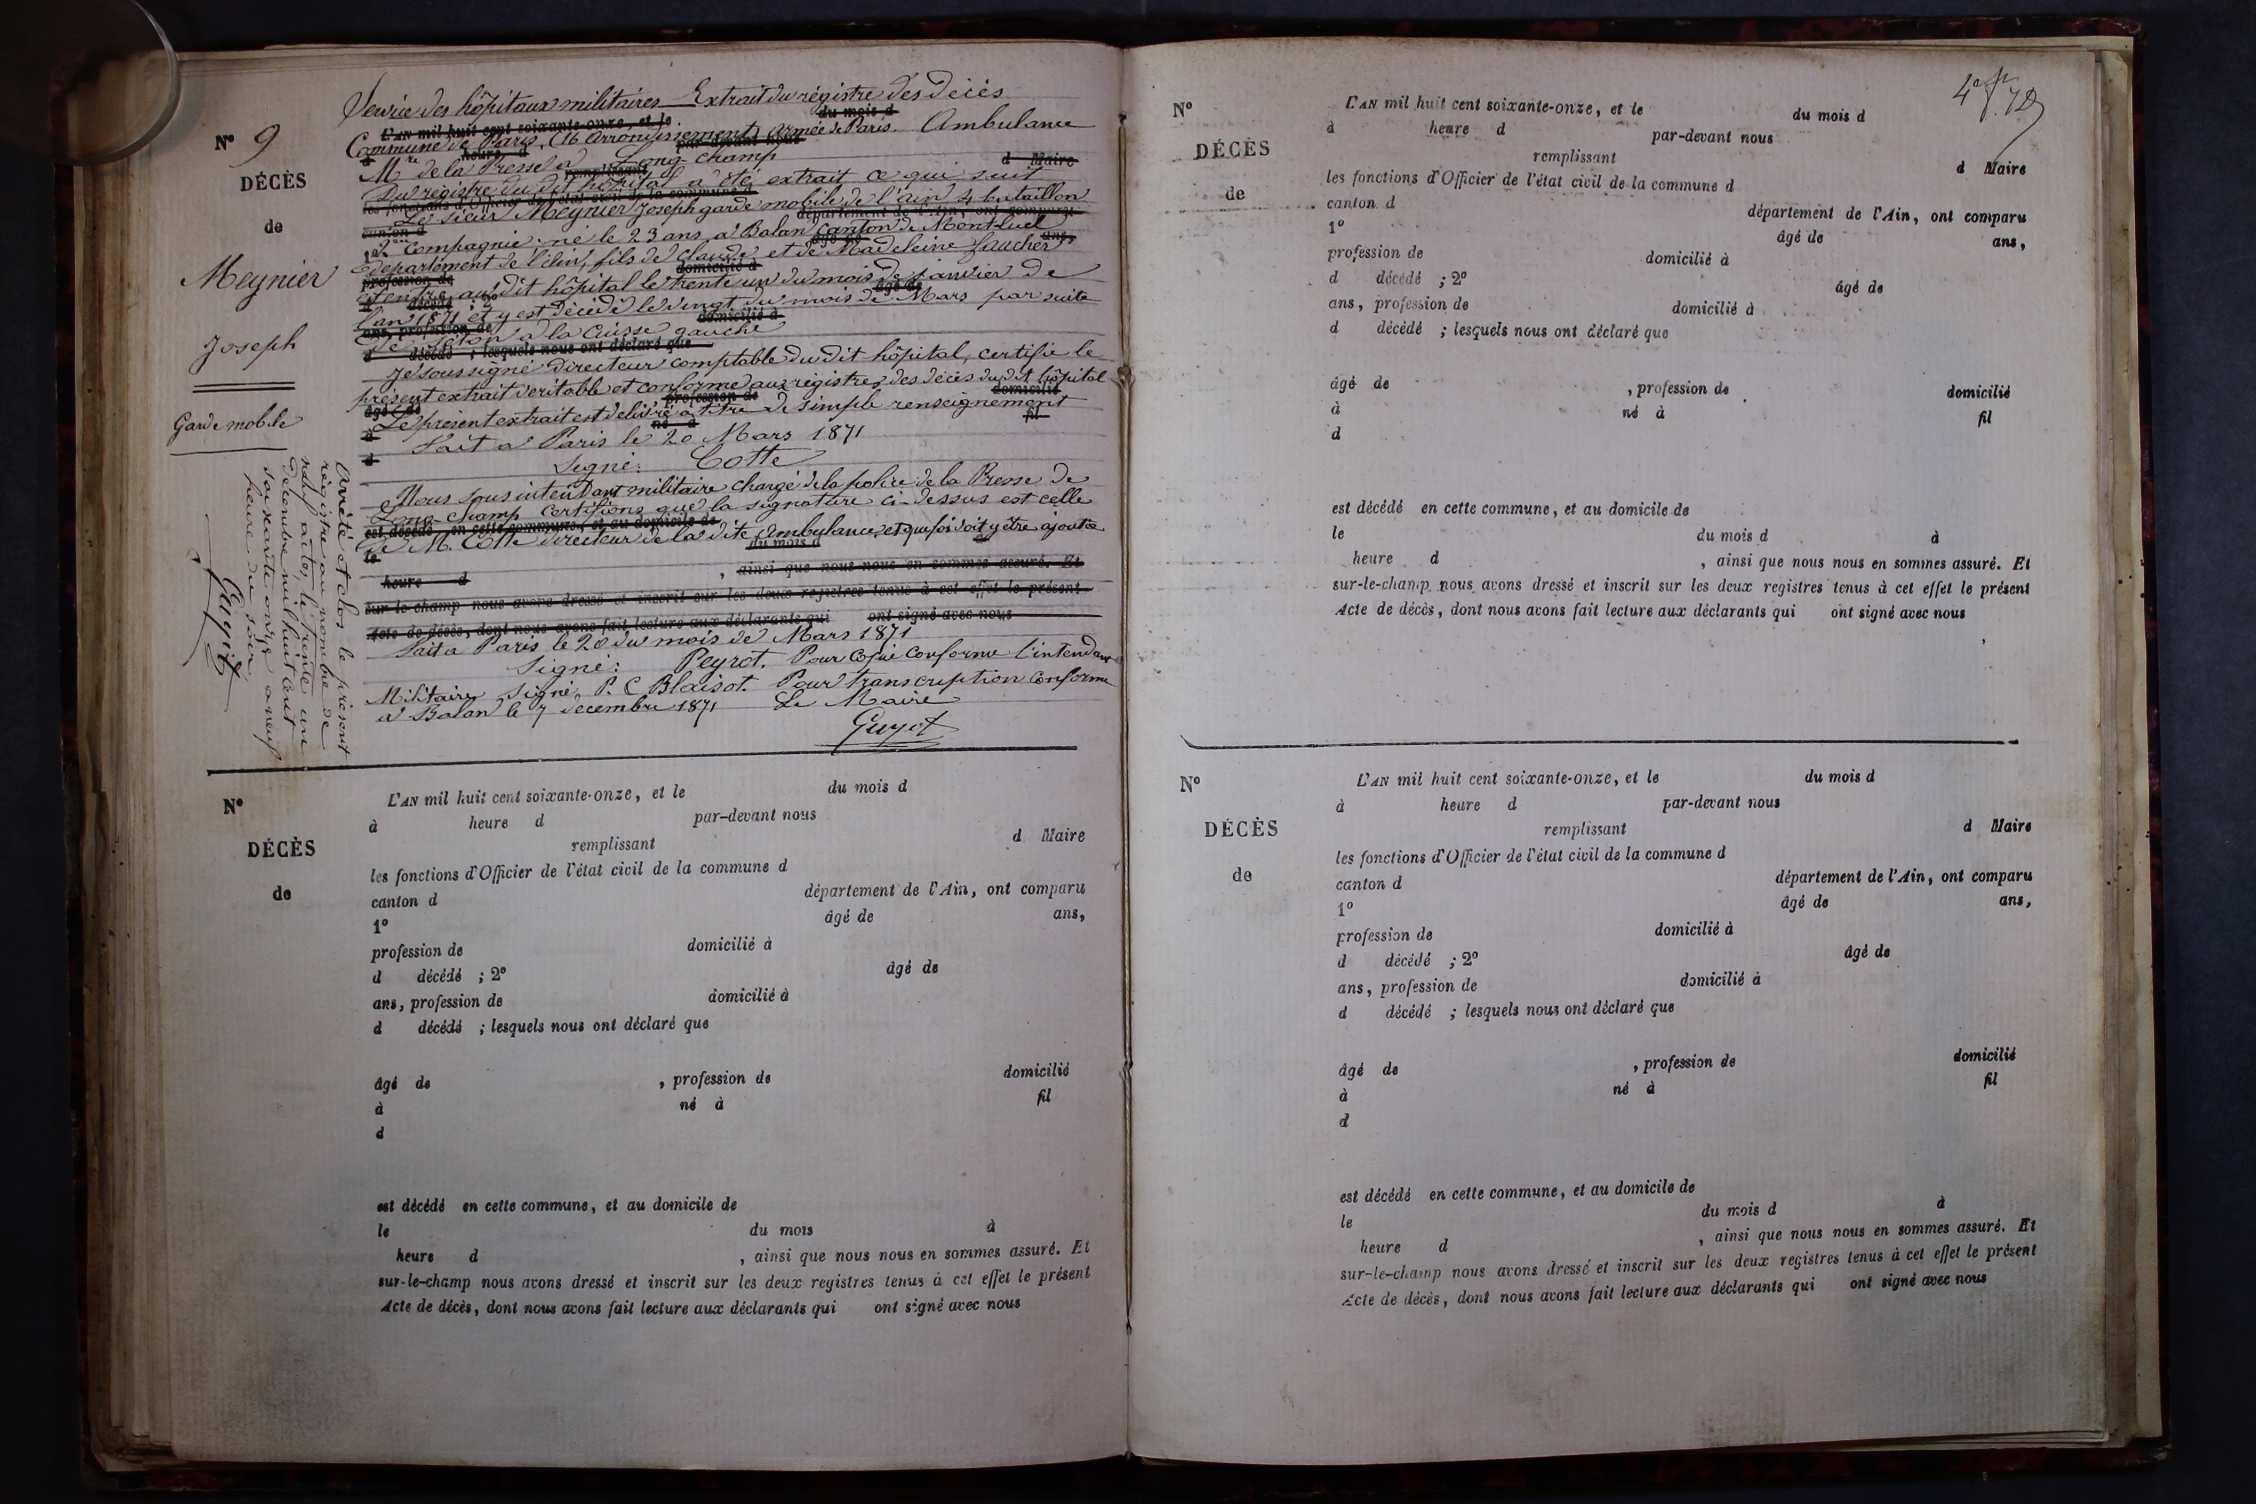 Service des hôpitaux militaires Extrait du régistre des décès
L'AN mil huit cent soixante-onze, et le du mois d
Commune de Paris, 16 arrondissement, armée de Paris Ambulance
Nº 9
à heure d par-devant nous
Mre de la Presse à Long champ
remplissant d Maire
DÉCÈS
Du régistre du dit hôpital a été extrait ce qui suit
les fonctions d'Officier de l'état civil de la commune d
Le sieur Meynier Joseph garde mobile de l'ain 4 bataillon
canton d département de l'Ain, ont comparu
de
2me compagnie, né le 23 ans à Balan canton de Montluel
1º âgé de ans,
département de l'Ain, fils de Claude et de Madeleine faucher
profession de domicilié à
Meynier
entré au dit hôpital le trente un du mois de janvier de
d décédé ; 2º âgé de
l'an 1871 et y est décédé le vingt du mois de Mars par suite
ans, profession de domicilié à
de séton à la cuisse gauche
Joseph
d décédé ; lesquels nous ont déclaré que
Je soussigné Directeur comptable du dit hôpital, certifie le
présent extrait véritable et conforme aux régistres des décès du dit hôpital
âgé de profession de domicilié
Le présent extrait est délivré à titre de simple renseignement
à né à fil
Garde mobile
fait à Paris le 20 Mars 1871
d
Signé: Cotte
Nous sous intendant militaire chargé de la police de la Presse de
Long-champ certifions que la signature ci-dessus est celle
est décédé en cette commune, et au domicile de
de M. Cotte directeur de la dite Ambulance, et que foi doit y être ajoutée
le du mois d
heure d , ainsi que nous nous en sommes assuré. Et
sur-le-champ nous avons dressé et inscrit sur les deux registres tenus à cet effet le présent
Acte de décès, dont nous avons fait lecture aux déclarants qui ont signé avec nous
fait à Paris le 20 du mois de Mars 1871
Signé: Peyrot. Pour copie conforme l'intendant
Militaire signé P. C Blaisot. Pour transcription conforme
à Balan le 7 decembre 1871 Le Maire
Guyot
Arrêté et clos le présent
régistre au nombre de
neuf actes, le trente un
décembre mil huit cent
soixante onze a neuf
heure du soir
Guyot
Nº
L'AN mil huit cent soixante-onze, et le du mois d
à heure d par-devant nous
DÉCÈS
remplissant d Maire
les fonctions d'Officier de l'état civil de la commune d
de
canton d département de l'Ain, ont comparu
1º âgé de ans,
profession de domicilié à
d décédé ; 2º âgé de
ans, profession de domicilié à
d décédé ; lesquels nous ont déclaré que
âgé de , profession de domicilié
à né à fil
d
est décédé en cette commune, et au domicile de
le du mois à
heure d , ainsi que nous nous en sommes assuré. Et
sur-le-champ nous avons dressé et inscrit sur les deux registres tenus à cet effet le présent
Acte de décès, dont nous avons fait lecture aux déclarants qui ont signé avec nous
Nº
L'AN mil huit cent soixante-onze, et le du mois d
à heure d par-devant nous
DÉCÈS
remplissant d Maire
les fonctions d'Officier de l'état civil de la commune d
de
canton d département de l'Ain, ont comparu
1º âgé de ans,
profession de domicilié à
d décédé ; 2º âgé de
ans, profession de domicilié à
d décédé ; lesquels nous ont déclaré que
âgé de , profession de domicilié
à né à fil
d
est décédé en cette commune, et au domicile de
le du mois d à
heure d , ainsi que nous nous en sommes assuré. Et
sur-le-champ nous avons dressé et inscrit sur les deux registres tenus à cet effet le présent
Acte de décès, dont nous avons fait lecture aux déclarants qui ont signé avec nous
Nº
L'AN mil huit cent soixante-onze, et le du mois d
à heure d par-devant nous
DÉCÈS
remplissant d Maire
les fonctions d'Officier de l'état civil de la commune d
de
canton d département de l'Ain, ont comparu
1º âgé de ans,
profession de domicilié à
d décédé ; 2º âgé de
ans, profession de domicilié à
d décédé ; lesquels nous ont déclaré que
âgé de , profession de domicilié
à né à fil
d
est décédé en cette commune, et au domicile de
le du mois d à
heure d , ainsi que nous nous en sommes assuré. Et
sur-le-champ nous avons dressé et inscrit sur les deux registres tenus à cet effet le présent
Acte de décès, dont nous avons fait lecture aux déclarants qui ont signé avec nous